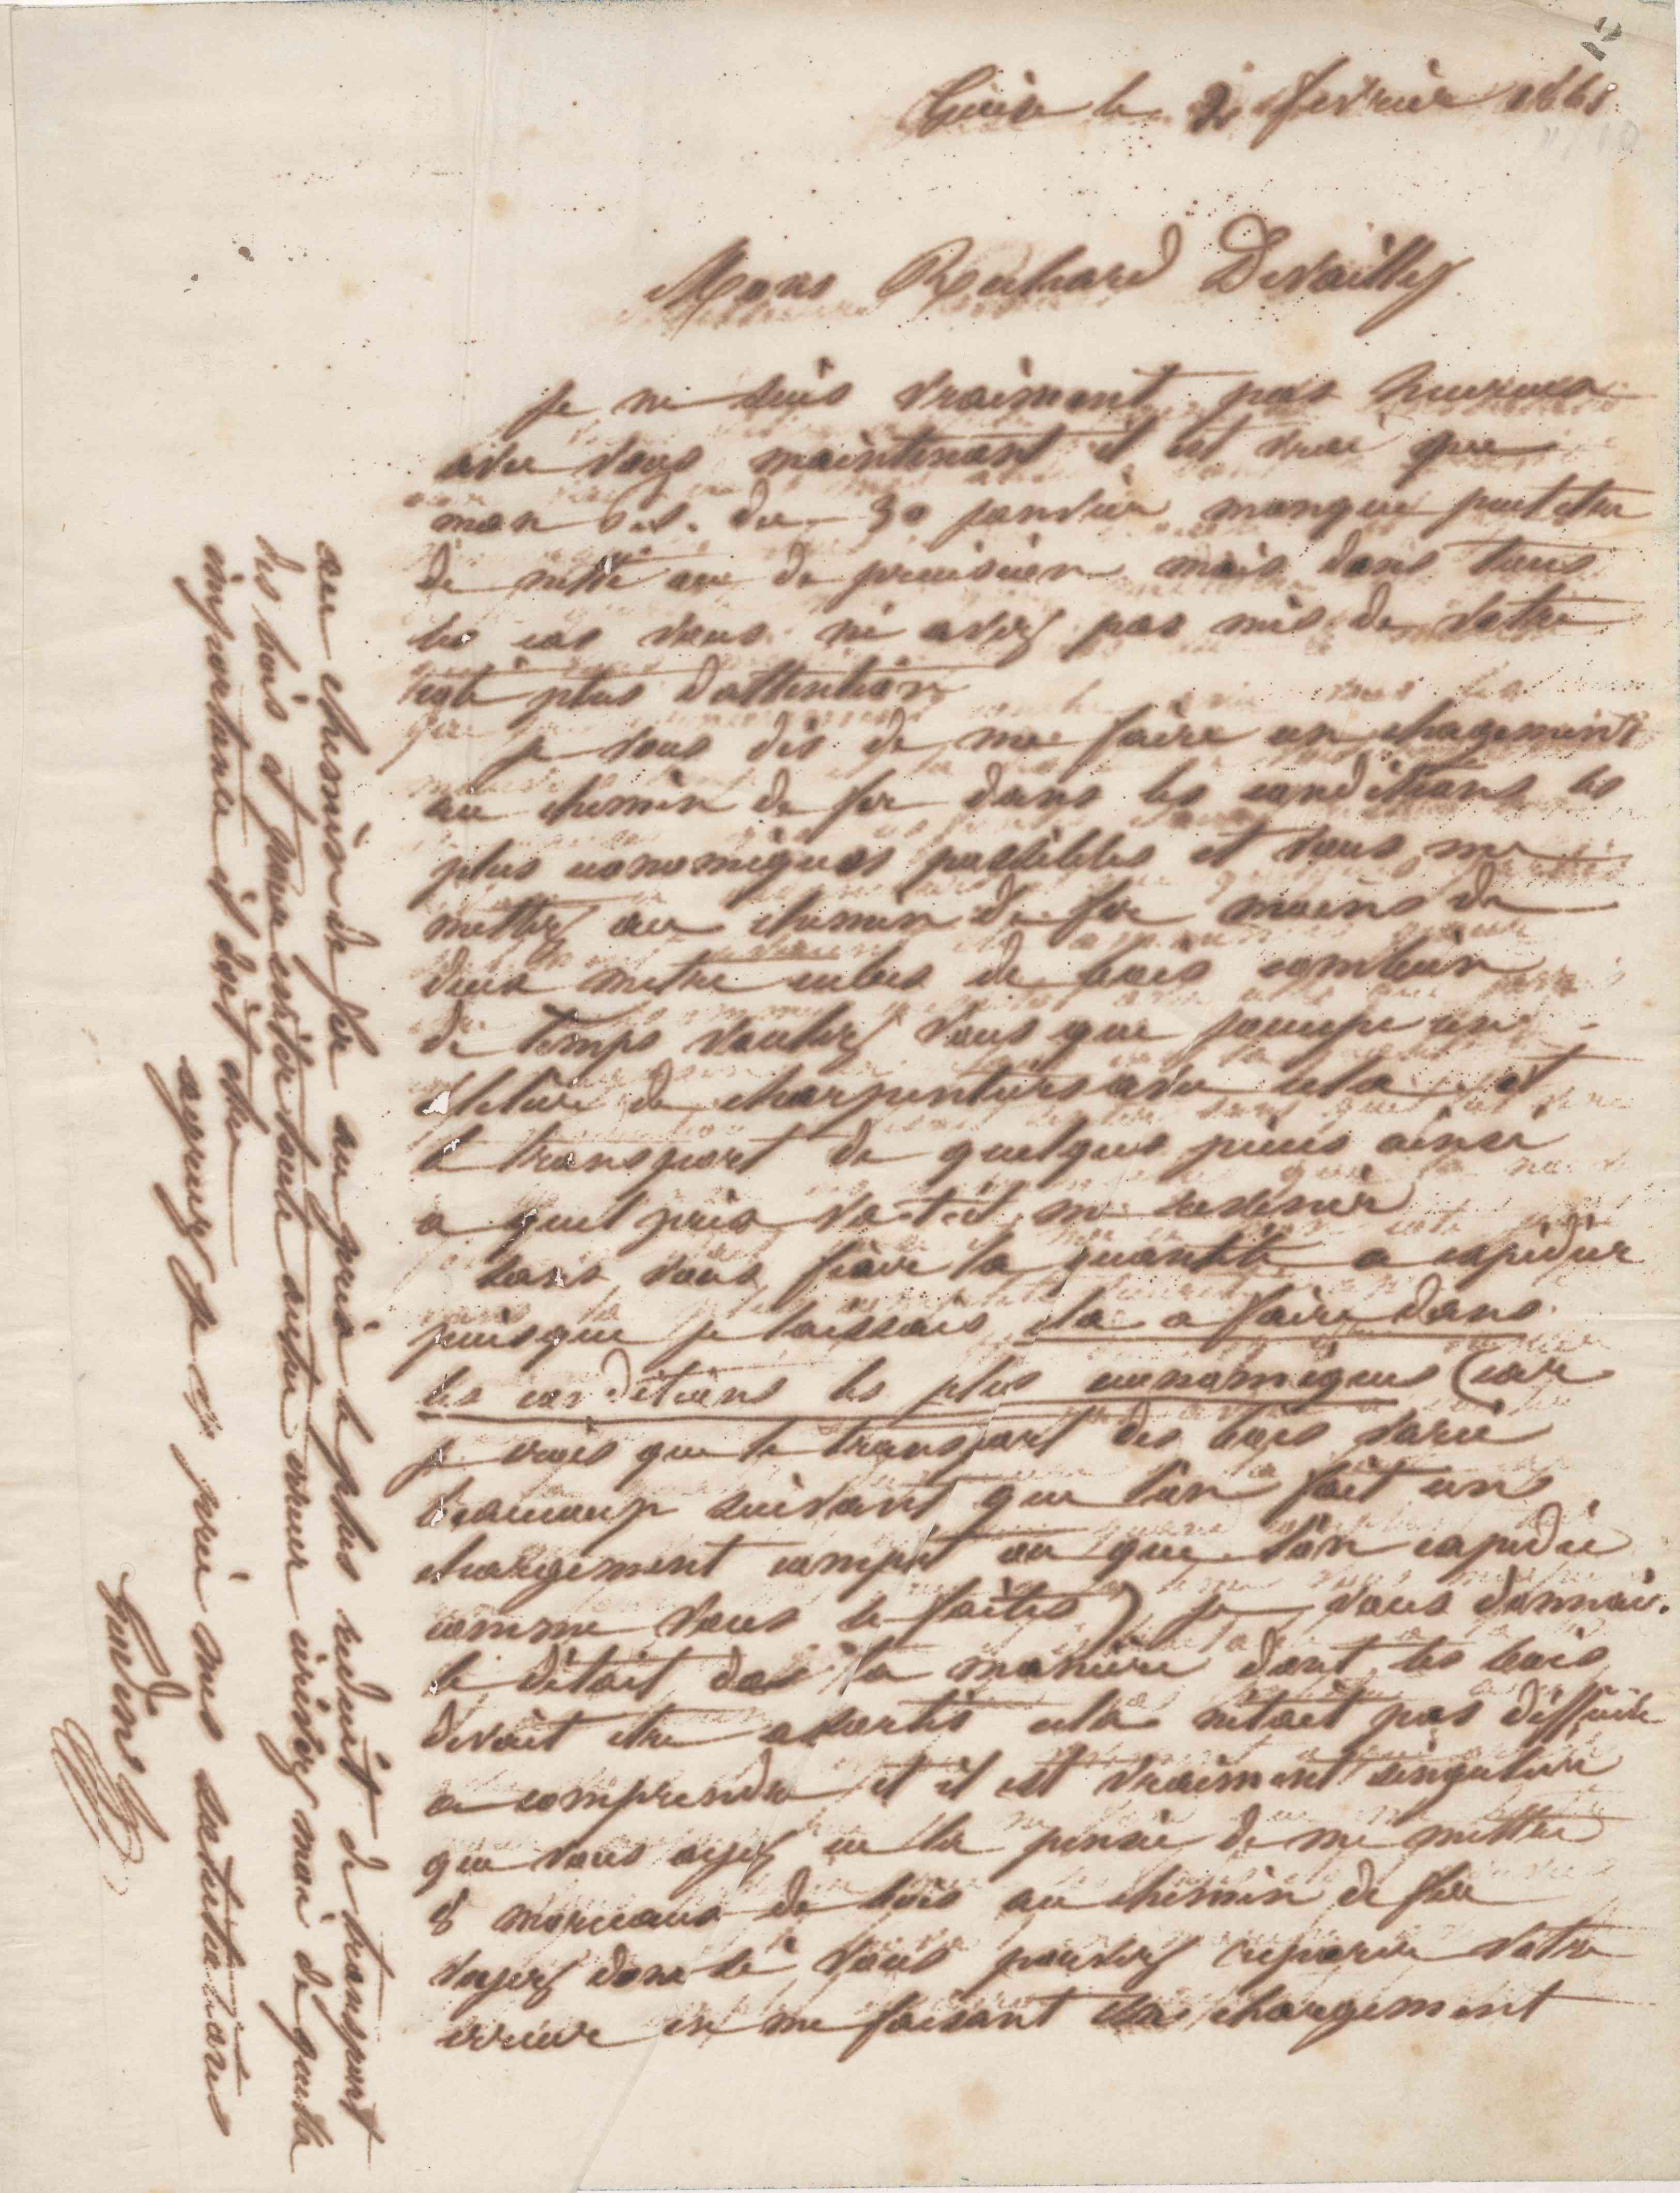 Guise le 2 fevrier 1861
Mons Rochard Devailly
Je ne suis vraiment pas heureux
avec vous maintenant il est vrai que
mon du 30 janvier manque peut etre
de netteté ou de precision mais dans tous
les cas vous ni avez pas mis de votre
coté plus d'attention
je vous dis de me faire un chagement
au chemin de fer dans les conditions les
plus economiques possibles et vous me
mettez au chemin de fer moins de
deux metre cubes de bois combien
de temps voulez vous que j'occupe un
atelier de charpentiers avec cela et
le transport de quelques pieces ainsi
a quel prix va-t-il me revenir
sans vous fixer la quantité a expedier
puisque je laissais cela a faire dans
les conditions les plus economiques (car
je crois que le transport des bois varie
beaucoup suivant que l'on fait un
chargement complet ou que l'on expedie
comme vous le faites) je vous donnais
le détail de la maniere dont les bois
devait etre assortis cela netait pas difficile
a comprendre et il est vraiment singulier
que vous ayez eu la pensée de me mettre
8 morceaux de bois au chemin de fer
voyez donc si vous pouvez reparer votre
erreur en me faisant un chargement
au chemin de fer au prix le plus reduit de transport
des bois et pour eviter toute autre erreur ecrivez moi de quelle
importance il doit etre
agreez je vous prie mes salutations
Godin